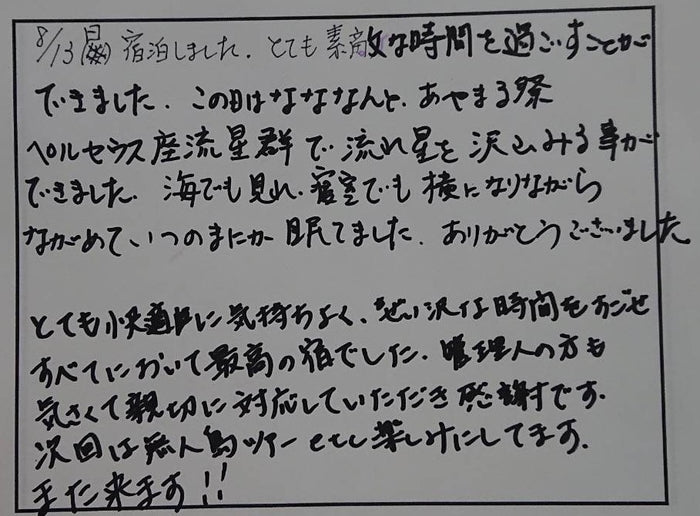 8/13 宿泊しました. とても 素敵な時間を過ごすことが
できました. この日はなななんと、あやまる祭
ペルセウス座流星群で 流れ星を 沢山みる事が
できました. 海でも見れ、寝室でも 横になりながら
ながめて いつのまにか 眠てました. ありがとうございました
とても快適に気持ちよく、ぜい沢な時間をすごせ
すべてにおいて最高の宿でした. 管理人の方も
気さくで親切に対応していただき感謝です.
次回は無人島ツアーetc 楽しみにしてます.
また来ます!!